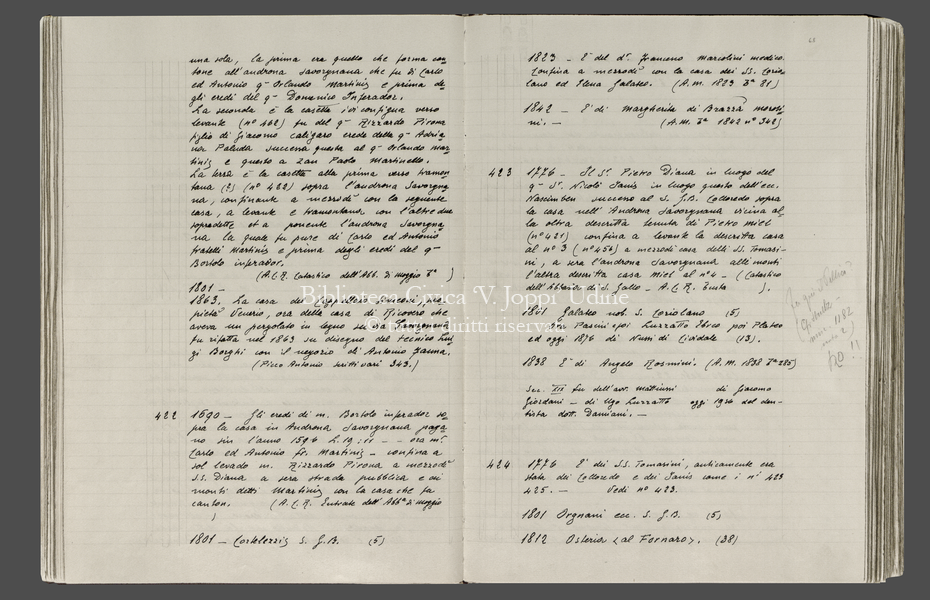 una sola, la prima era quella che forma can
tone all'androna Savorgnana che fu di Carlo
ed Antonio q.m Orlando Martinis e prima de
gli eredi del q.m Domenico Inferador.
La seconda è la casetta ivi contigua verso
levante (n° 462) fu del q.m Rizzardo Pirona
figlio di Giacomo caligaro erede della q.m Adria
na Paluda successa questa al q.m Orlando Mar
tinis e questo a Zan Paolo Martinello.
La terza è la casetta alla prima verso tramon
tana (?) (n° 422) sopra l'androna Savorgna
na, confinante a mezzodì con la seguente
casa, a levante e tramontana, con l'altre due
sopradette et a ponente l'androna Savorgna
na la quale fu pure di Carlo ed Antonio
fratelli Martinis e prima degli eredi del q.m
Bortolo inferador.
(A.C.R. Catastico dell'Abb. di Moggio
1801 —
1863. La casa
prietà Venerio, ora della casa di Ricovero che
aveva un pergolato in legno
fu rifatta nel 1863 su disegno del tecnico Lui
gi Borghi con il negozio di Antonio Fanna.
(Picco Antonio scritti vari 343.)
422 1590 — Gli eredi di m. Bortolo inferador so
pra la casa in Androna Savorgnana paga
no sin l'anno 1596 L. 19:11 — ora m.
Carlo ed Antonio fr. Martinis — confina a
sol levado m. Rizzardo Pirona a mezzodì
S.S. Diana a sera strada pubblica e ai
monti detti Martinis con la casa che fa
canton. (A.C.R. Entrate dell'Abb.a di Moggio
)
1801 — Cortelezzis S. G.B. (5)
1823 — È del d.r Francesco Mariotini medico.
Confina a mezzodì con la casa dei SS. Corio
lano ed Elena Galateo. (A.M. 1823 81)
1842 — È di Margherita di Brazzà Morosi
ni. — (A.M. 1842 n° 342)
423 1776 — Il S.r Pietro Diana in luogo del
q.m S.r Nicolò Janis in luogo questo dell'ecc.
Nassimben successo al S. G.B. Colloredo sopra
la casa nell'Androna Savorgnana vicina al
la oltra descritta tenuta di Pietro Miel
(n° 421) confina a levante la descritta casa
al n° 3 (n° 456) a mezzodì casa delli SS. Tomasi-
ni, a sera l'androna Savorgnana alli monti
l'altra descritta casa Miel al n° 4 — (Catastico
dell'Abbazia di S. Gallo — A.C.R. Busta ).
1801 Galateo nob. S. Coriolano (5)
fu dei Pascini poi Luzzatto Ebreo poi Plateo
ed oggi 1876 di Nussi di Cividale (13).
1838 È di Angelo Rosmini. (A.M. 1838 285)
Sec. XIX fu dell'avv. Mattiussi di Giacomo
Giordani — di Ugo Luzzatto oggi 1936 del den-
tista dott. Damiani. —
424 1776 È dei S.S. Tomasini, anticamente era
stata dei Colloredo e dei Janis come i n.i 423
425. — Vedi n° 423.
1801 Orgnani ecc. S. G.B. (5)
1812 Osteria «al Fornaro». (38)
Biblioteca Civica 'V. Joppi' Udine
© tutti i diritti riservati